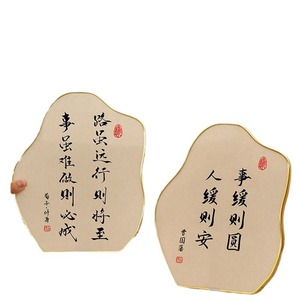 路虽远行则将至
事虽难做则必成
荀子·修身
事缓则圆
人缓则安
曾国藩